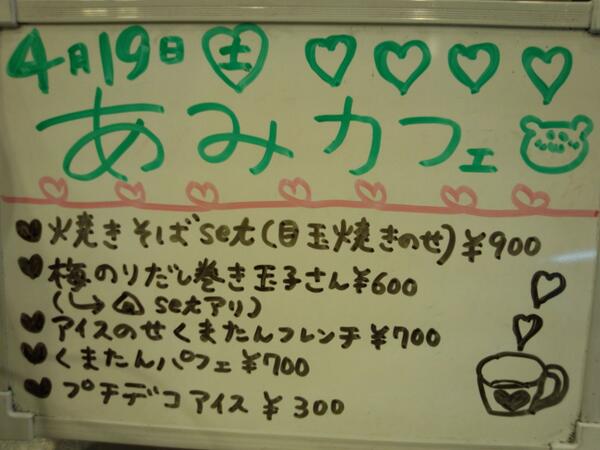 4月19日 土
あみカフェ
焼きそばset(目玉焼きのせ)¥900
梅のりだし巻き玉子さん¥600
(↳🍙setアリ)
アイスのせくまたんフレンチ¥700
くまたんパフェ¥700
プチデコアイス¥300